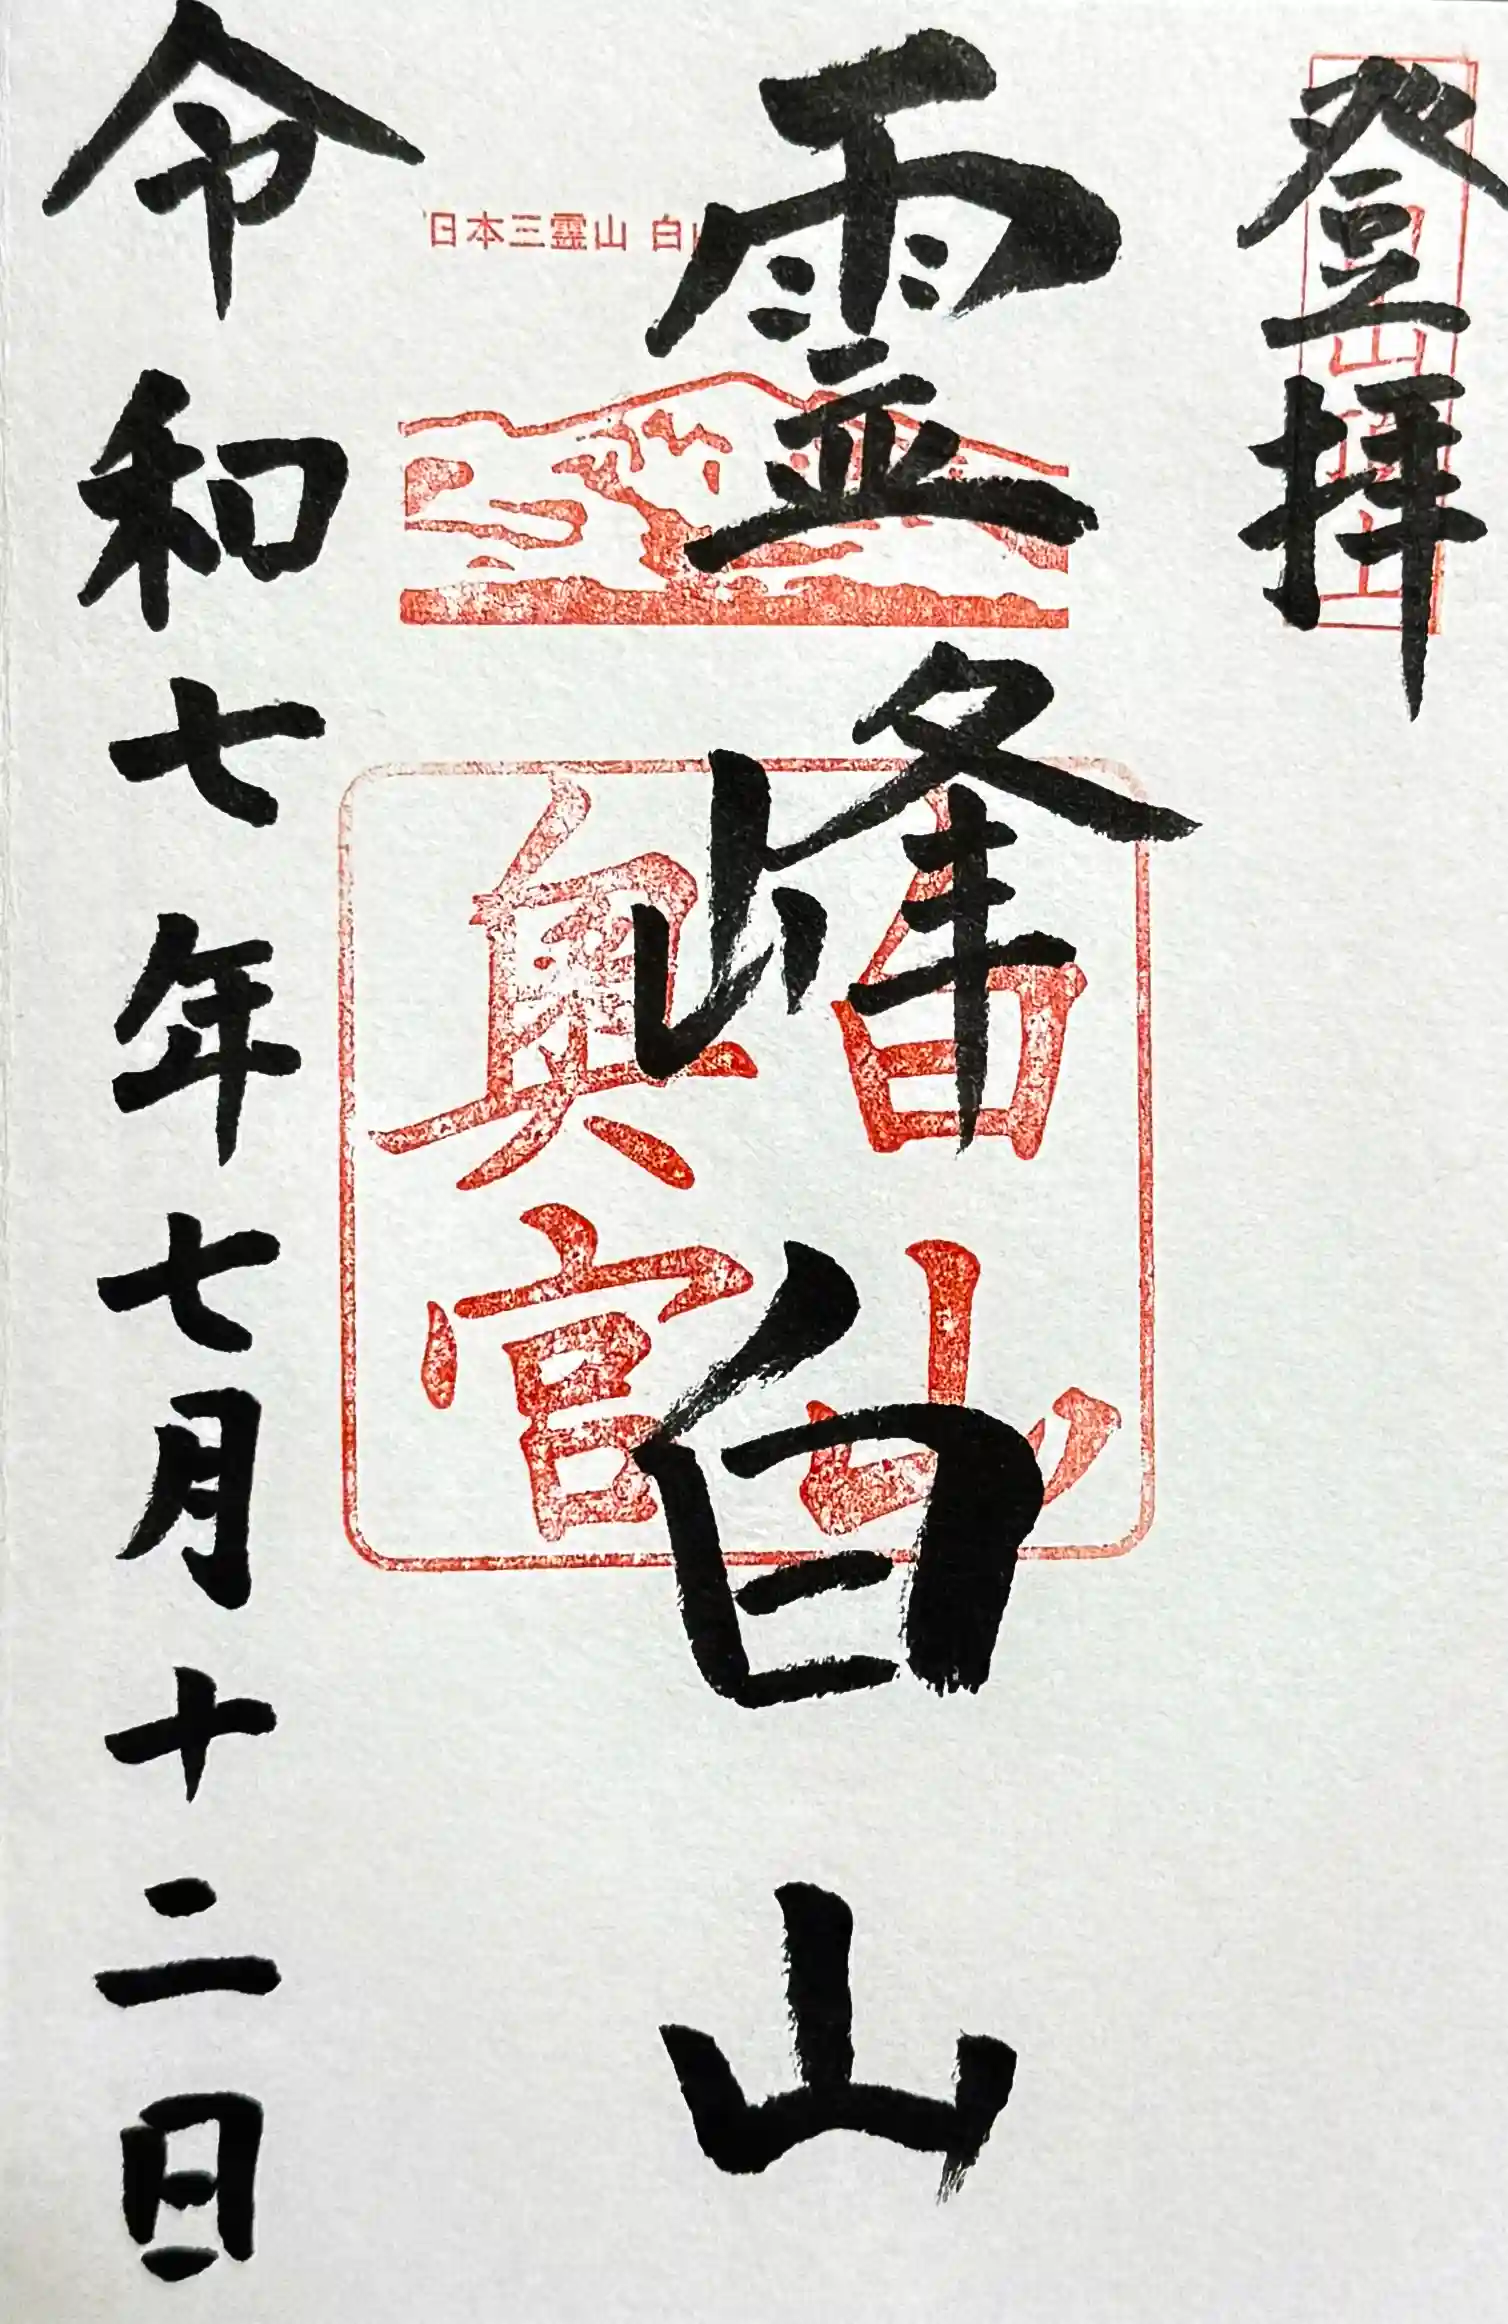 登拝
霊峰白山
日本三霊山 白山
白山
奥宮
令和七年七月十二日